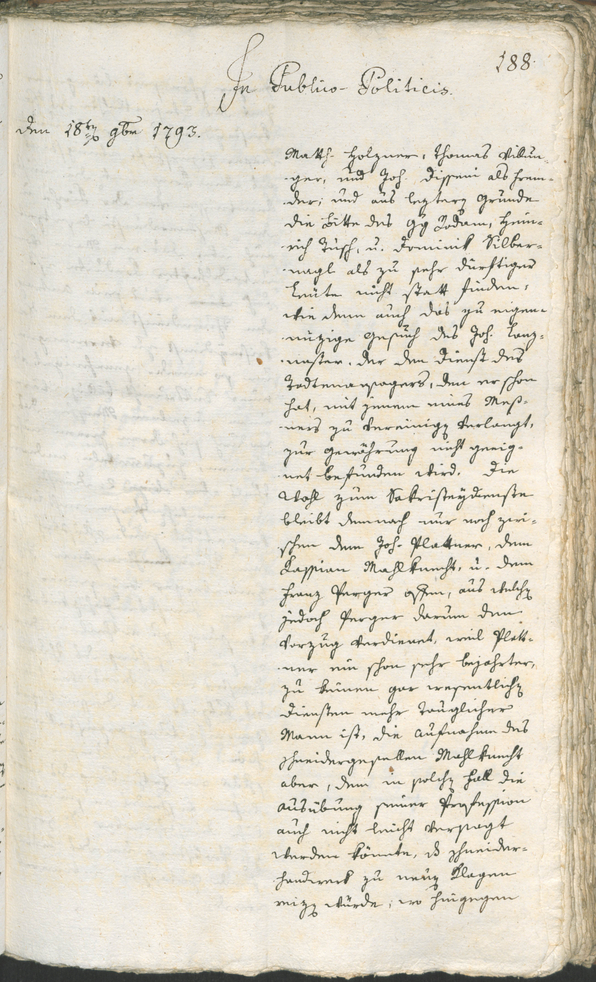 188.
In Publico-Politicis.
den 18ten 9br 1793.
Math. Holzner, Thomas
ger, und Joh. Disseni als frem-
der; und aus leztern Grunde
die Bitte des Gg Jodam, Hein-
rich Tusch, u. Dominik Silber-
nagl als zu sehr dürftiger
Leute nicht statt finden,
wie denn auch das zu eigen-
nüzige Gesuch des Joh. Lanz-
naster, der den Dienst des
Todtenansagers, den er schon
hat, mit jenem eines Meß-
ners zu vereinigen verlangt,
zur Gewährung nicht geeig-
net befunden wird. Die
Wahl zum Sakristeydienste
bleibt demnach nur noch zwi-
schen dem Joh. Plattner, dem
Kassian Mahlknecht, u. dem
Franz Perger offen, aus welchen
jedoch Perger darum den
Vorzug verdienet, weil Platt-
ner ein schon sehr bejahrter,
zu keinen gar wesentlichen
Diensten mehr tauglicher
Mann ist, die Aufnahm des
Schneidergesellen Mahlknecht
aber, dem in solchen Fall die
Ausübung seiner Profession
auch nicht leicht versagt
werden könnte, das Schneider-
handwerk zu neuen Klagen
reizen würde; wo hingegen